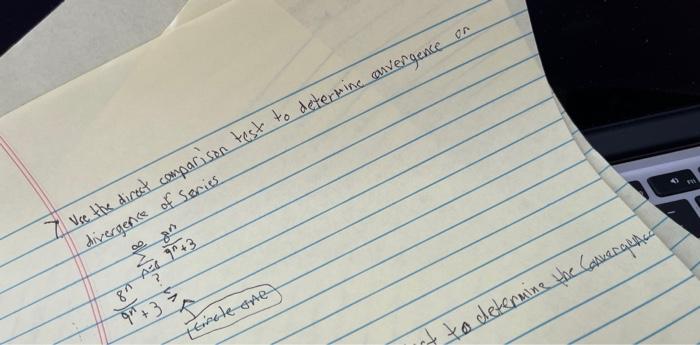 7. Use the direct comparison test to determine convergence or
divergence of series
∞
Σ 8ⁿ/9ⁿ+3
?
8ⁿ/9ⁿ+3 > <
Circle ONE
to determine the Convergence